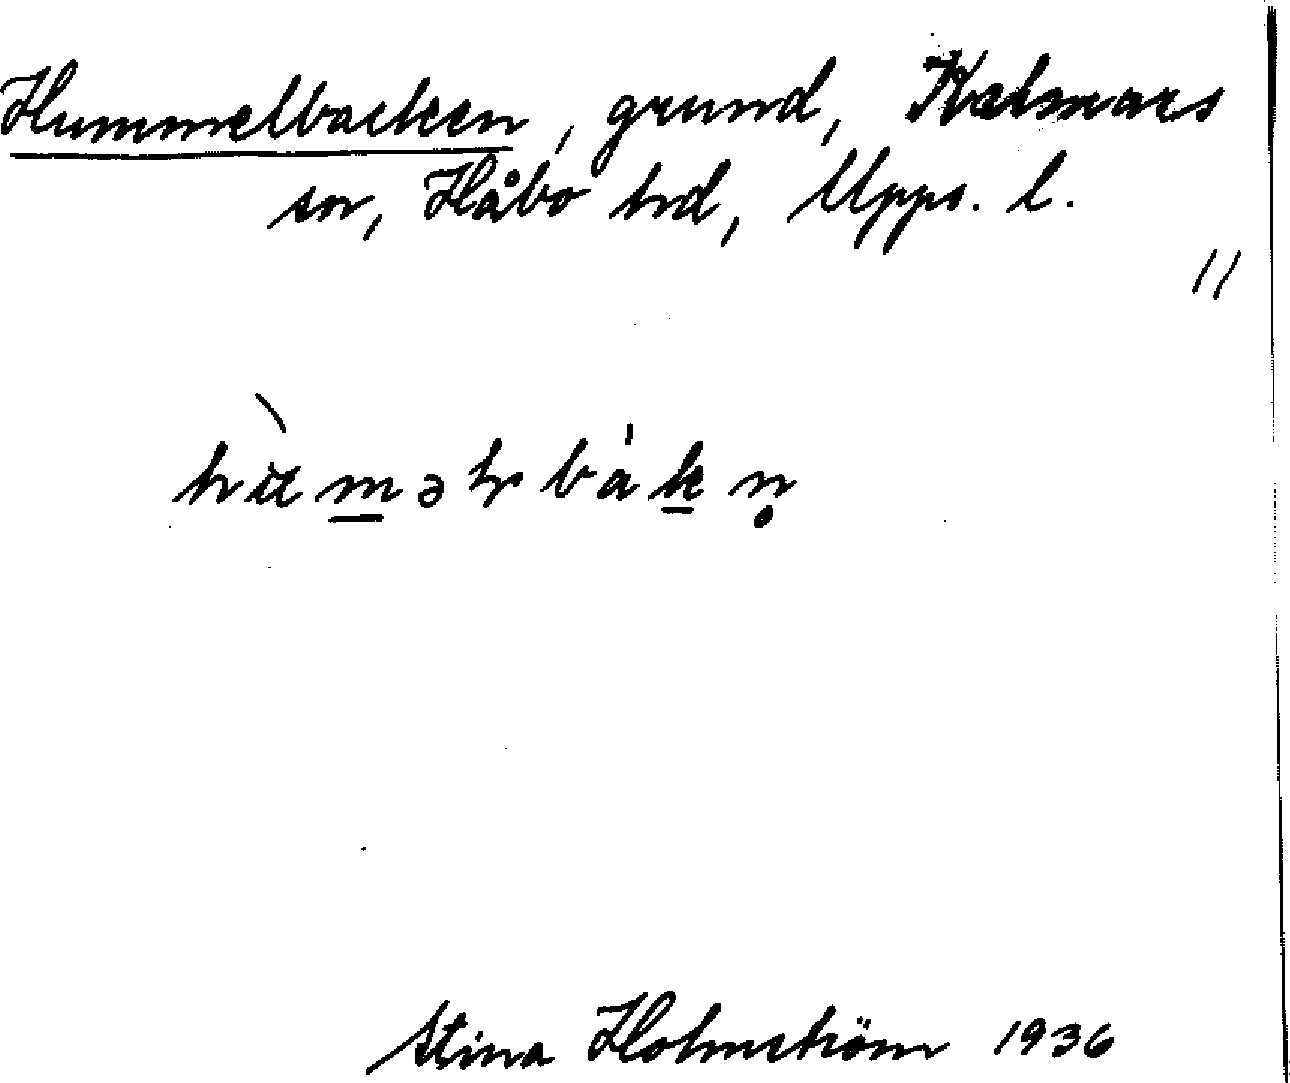 Hummelbacken, grund, Kalmars
sn, Håbo hd, Upps. l.
11
Stina Holmström 1936